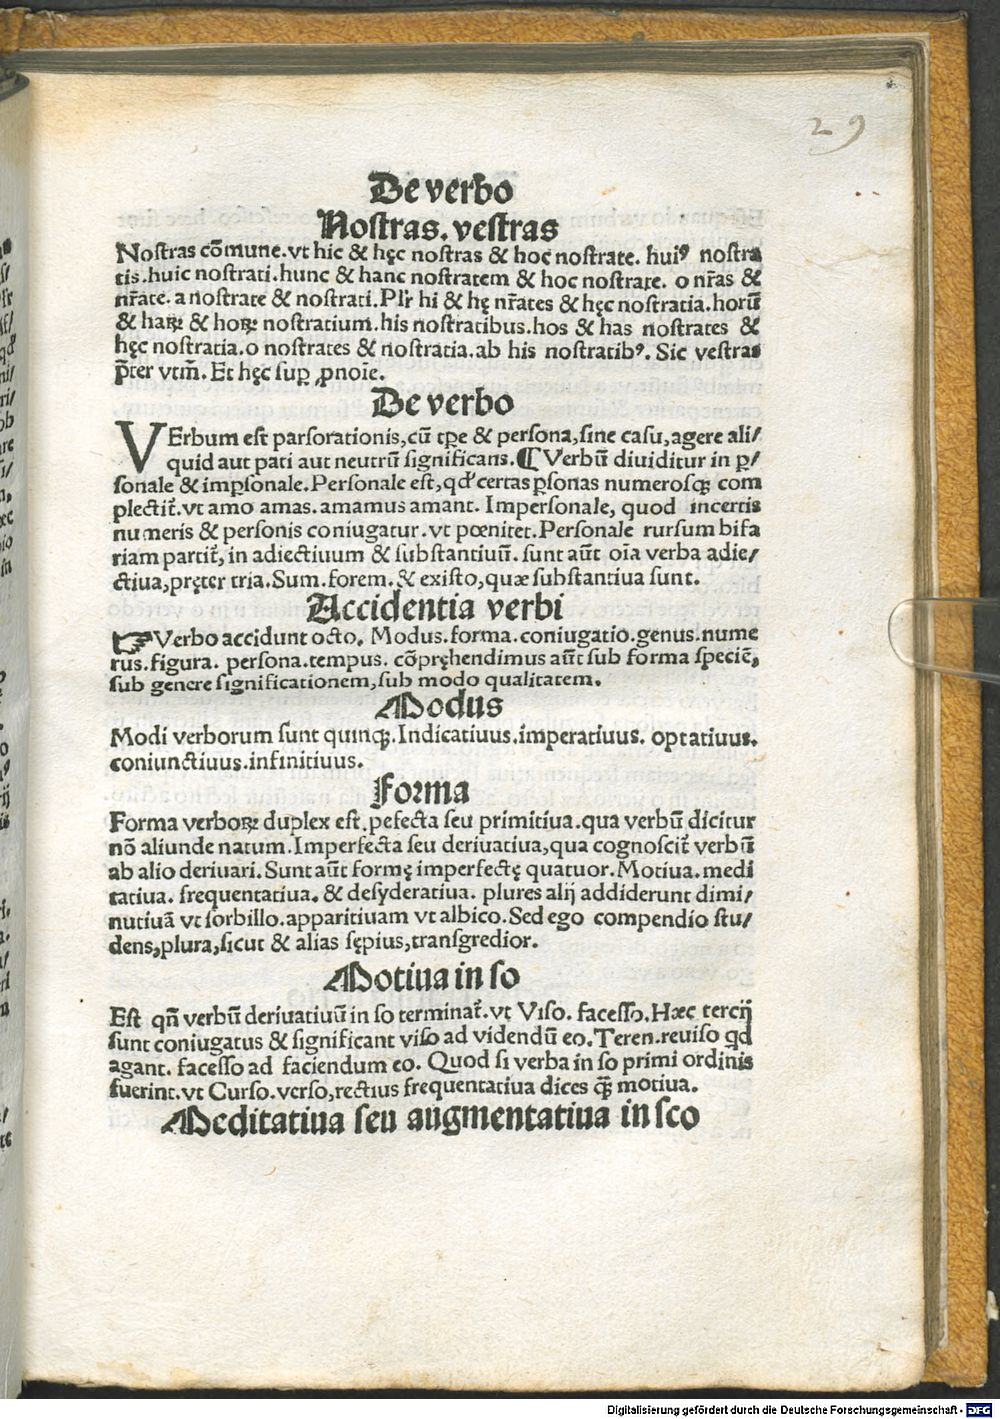 29
De verbo
Nostras. vestras
Nostras cōmune. vt hic & hęc nostras & hoc nostrate. huiꝰ nostra
tis. huic nostrati. hunc & hanc nostratem & hoc nostrate. o nr̄as &
nr̄ate. a nostrate & nostrati. Plr̄ hi & hę nr̄ates & hęc nostratia. horū
& haꝝ & hoꝝ nostratium. his nostratibus. hos & has nostrates &
hęc nostratia. o nostrates & nostratia. ab his nostratibꝰ. Sic vestras
p̄ter vtm̄. Et hęc suꝑ ꝓnoīe.
De verbo
VErbum est parsorationis, cū tꝑe & persona, sine casu, agere ali/
quid aut pati aut neutrū significans. ¶ Verbū diuiditur in ꝑ/
sonale & imꝑsonale. Personale est, qđ certas ꝑsonas numerosqꝫ com
plectit̄. vt amo amas. amamus amant. Impersonale, quod incertis
numeris & personis coniugatur. vt pœnitet. Personale rursum bifa
riam partit̄, in adiectiuum & substantiuū. sunt aūt oīa verba adie/
ctiua, pręter tria. Sum. forem. & existo, quæ substantiua sunt.
Accidentia verbi
☞ Verbo accidunt octo. Modus. forma. coniugatio. genus. nume
rus. figura. persona. tempus. cōpręhendimus aūt sub forma speciē,
sub genere significationem, sub modo qualitatem.
Modus
Modi verborum sunt quinqꝫ. Indicatiuus. imperatiuus. optatiuus.
coniunctiuus. infinitiuus.
Forma
Forma verboꝝ duplex est. pefecta seu primitiua. qua verbū dicitur
nō aliunde natum. Imperfecta seu deriuatiua, qua cognoscit̄ verbū
ab alio deriuari. Sunt aūt formę imperfectę quatuor. Motiua. medi
tatiua. frequentatiua. & desyderatiua. plures alij addiderunt dimi/
nutiuā vt sorbillo. apparitiuam vt albico. Sed ego compendio stu/
dens, plura, sicut & alias sępius, transgredior.
Motiua in so
Est qn̄ verbū deriuatiuū in so terminat̄. vt Viso. facesso. Hæc tercij
sunt coniugatus & significant viso ad videndū eo. Teren. reuiso qđ
agant. facesso ad faciendum eo. Quod si verba in so primi ordinis
fuerint. vt Curso. verso, rectius frequentatiua dices qꝫ̄ motiua.
Meditatiua seu augmentatiua in sco
Digitalisierung gefördert durch die Deutsche Forschungsgemeinschaft - DFG